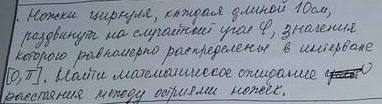 . Ножки циркуля, каждая длиной 10см,
раздвинуты на случайный угол φ, значения
которого равномерно распределенье в интервале
[0, π]. Найти математическое ожидание
расстояния между остриями ножек.